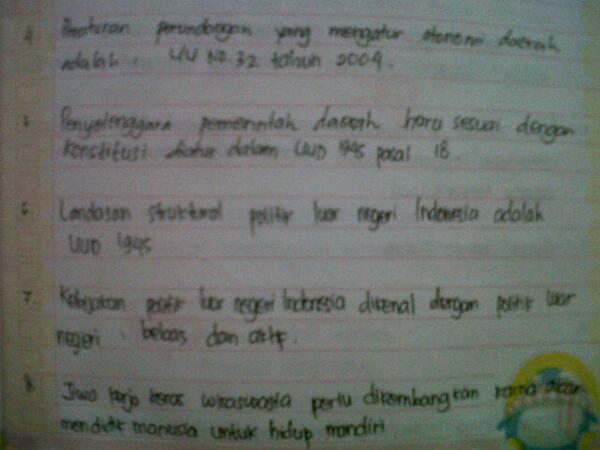 4. Peraturan perundangan yang mengatur otonomi daerah
adalah : UU No. 32 tahun 2004.
5. Penyelenggara pemerintah daerah haru sesuai dengan
konstitusi diatur dalam UUD 1945 pasal 18
6. Landasan struktural politik luar negeri Indonesia adalah
UUD 1945
7. Kebijakan politik luar negeri Indonesia dikenal dengan politik luar
negeri : bebas dan aktif.
8. Jiwa kerja keras wiraswasta perlu dikembangkan karna akan
mendidik manusia untuk hidup mandiri